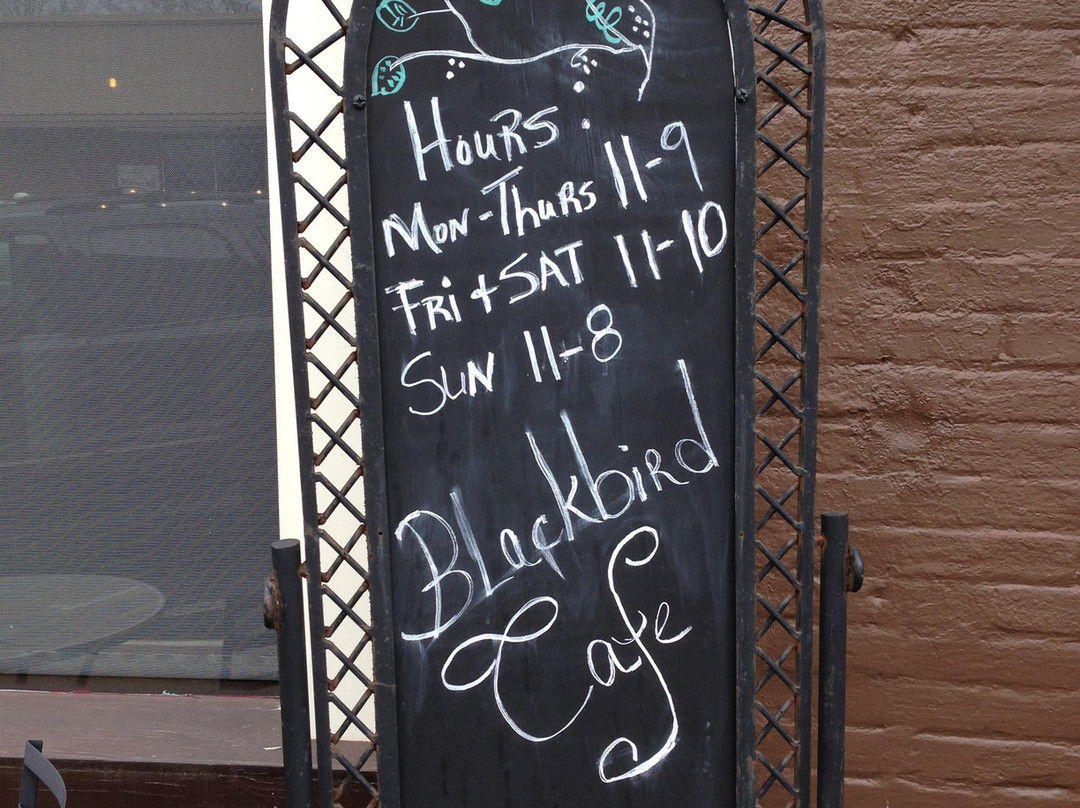 Hours:
Mon-Thurs 11-9
Fri + SAT 11-10
Sun 11-8
Blackbird
Cafe